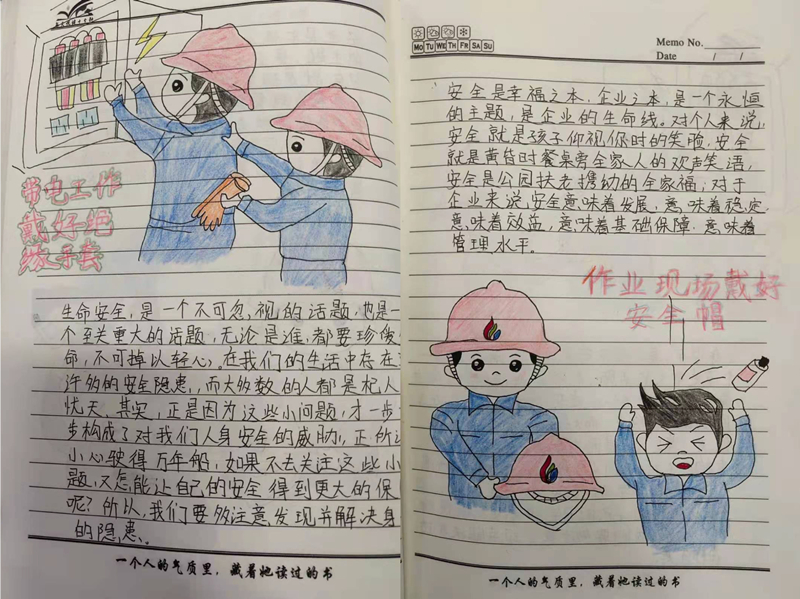 带电工作
戴好绝
缘手套
生命安全，是一个不可忽视的话题，也是一
个至关重大的话题，无论是谁，都要珍
命，不可掉以轻心。在我们的生活中存在
许多的安全隐患，而大多数的人都是杞人
忧天。其实，正是因为这些小问题，才一步
步构成了对我们人身安全的威胁，正所
小心驶得万年船，如果不去关注这些小
题，又怎能让自己的安全得到更大的保
呢？所以，我们要多注意发现并解决身
的隐患。
一个人的气质里，藏着她读过的书
MO TU WE TH FR SA SU
Memo No.
Date / /
安全是幸福之本，企业之本，是一个永恒
的主题，是企业的生命线。对个人来说，
安全就是孩子仰视你时的笑脸，安全
就是黄昏时餐桌旁全家人的欢声笑语，
安全是公园扶老携幼的全家福；对于
企业来说，安全意味着发展，意味着稳定，
意味着效益，意味着基础保障，意味着
管理水平。
作业现场戴好
安全帽
一个人的气质里，藏着她读过的书